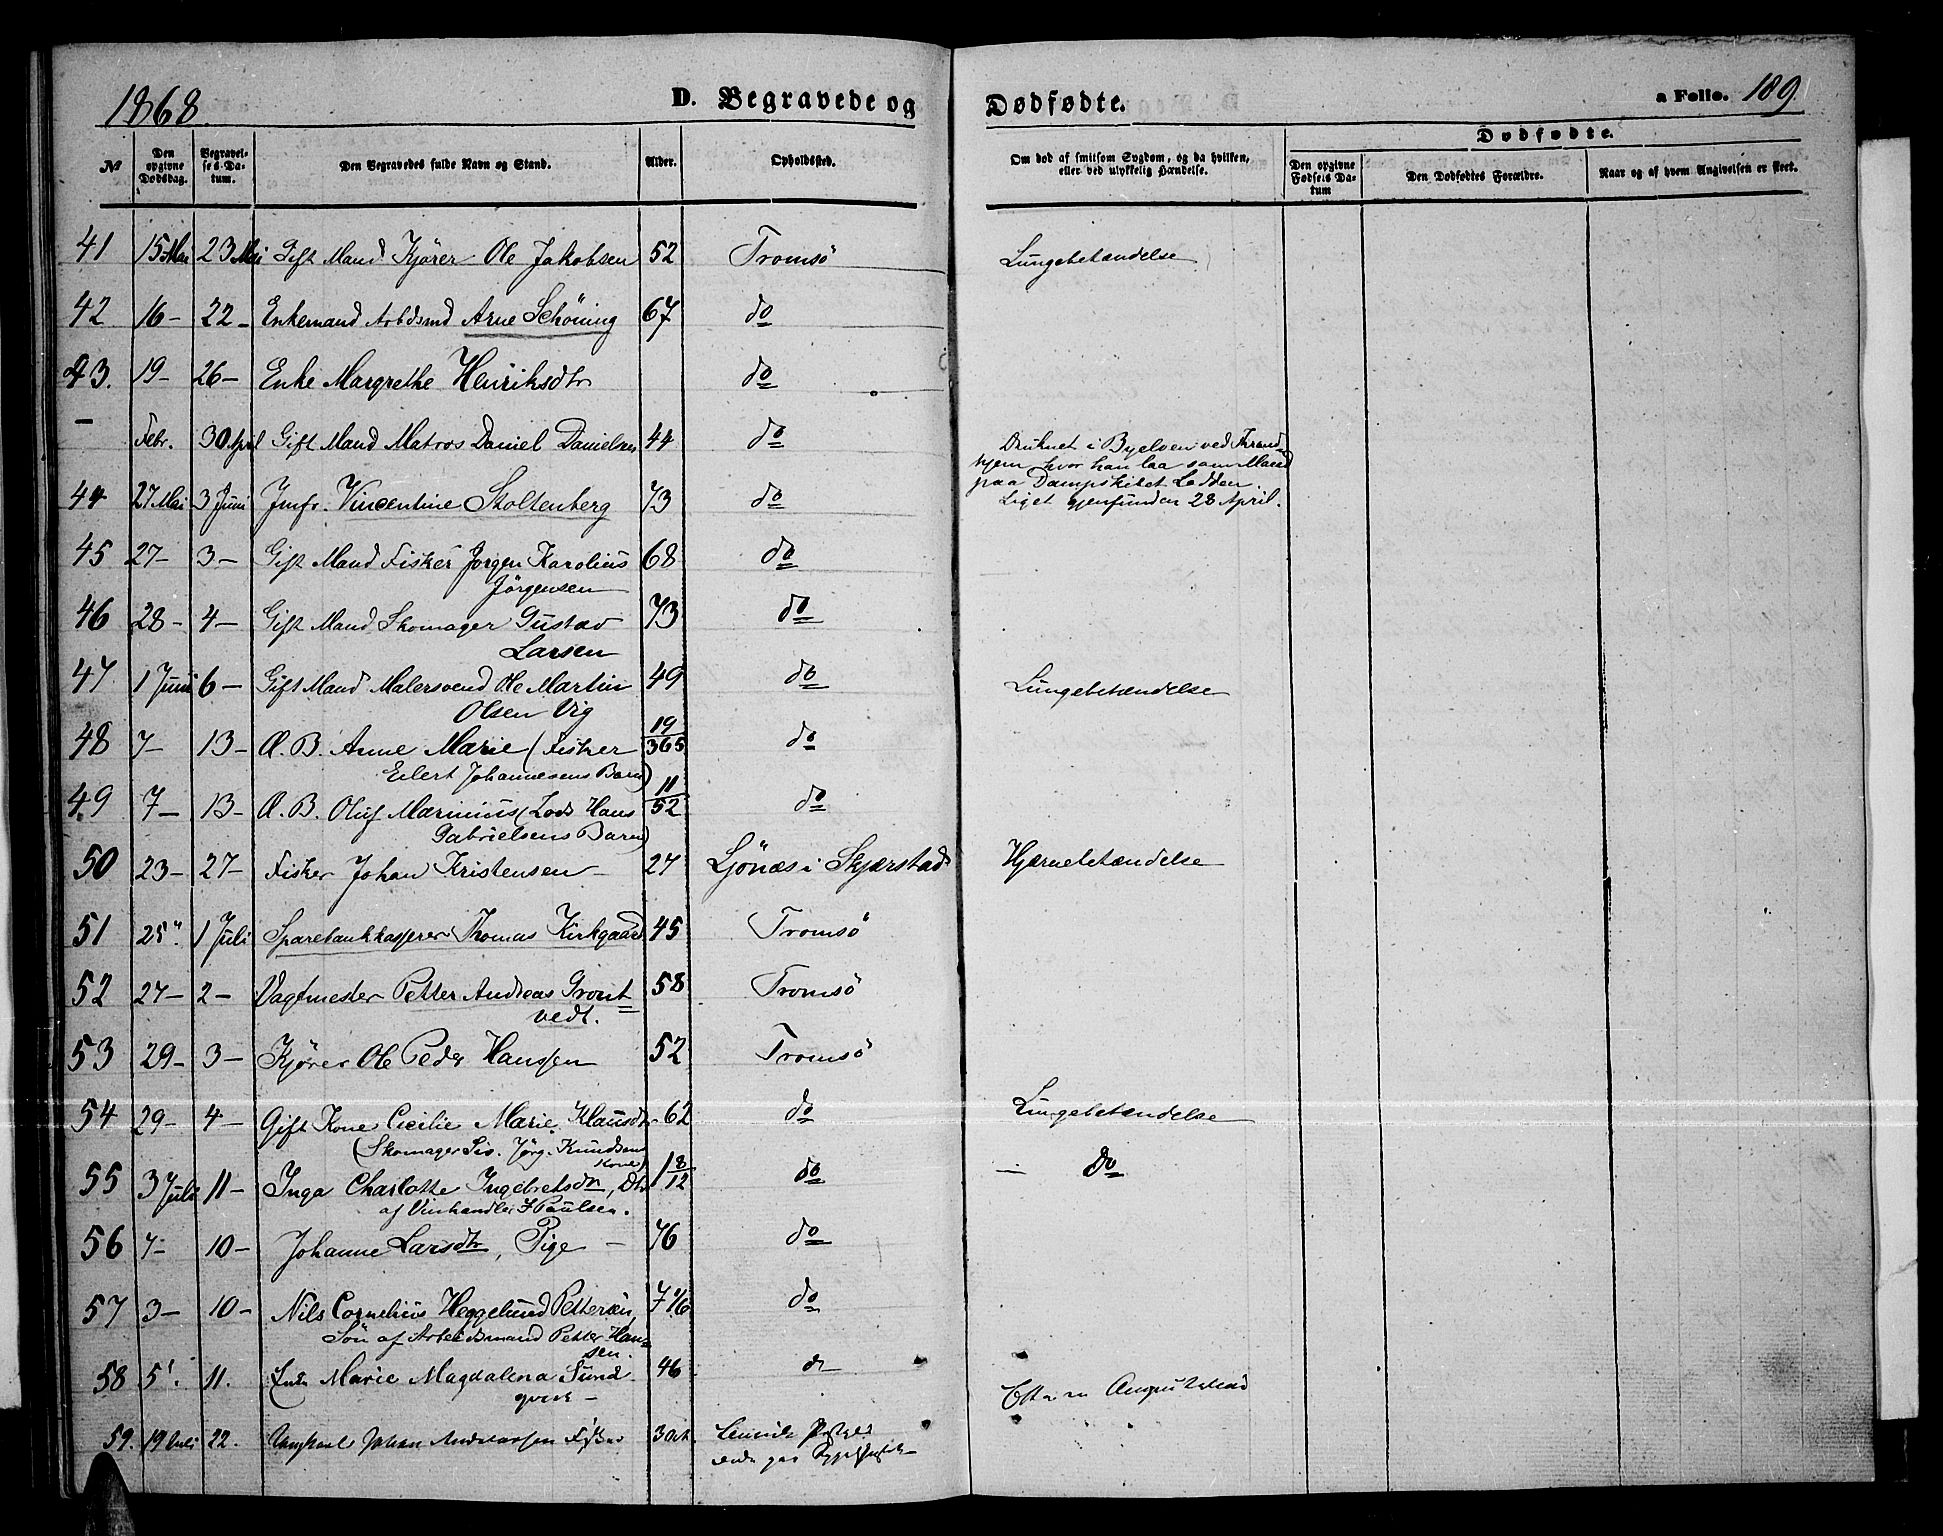 1868. D. Begravede og Dødfødte. a Folio. 189.
Dødfødte.
№ Den opgivne Dødsdag. Begravelses-Datum. Den Begravedes fulde Navn og Stand. Alder. Opholdssted. Om død af smitsom Sygdom, og da hvilken, eller ved ulykkelig Hændelse. Den opgivne Fødsels Datum Den Dødfødtes Forældre. Naar og af hvem Angivelsen er skeet.
41 15 Mai 23 Mai Gift Mand Kjører Ole Jakobsen 52 Tromsö Lungebetændelse
42 16 – 22 – Enkemand Arbdsmd Arne Schöning 67 do
43. 19 – 26 – Enke Margrethe Henriksdtr do
– Febr. 30 April Gift Mand Matros Daniel Danielsen 44 do Druknet i Byelven ved Thrond-
hjem hvor han laa som Mand
paa Dampskibet
Liget gjenfunden 28 April.
44 27 Mai 3 Juni Jmfr. Vincentine Stoltenberg 73 do
45 27 – 3 – Gift Mand Fisker Jørgen Karolius 68 do
Jörgensen
46 28 – 4 – Gift Mand Skomager Gustav 73 do
Larsen
47 1 Juni 6 – Gift Mand Malersvend Ole Martin 49 do Lungebetændelse
Olsen Vig
48 7 – 13 – Æ. B. Anne Marie (Fisker 19/365 do
Eilert Johannesens Barn)
49 7 – 13 – Æ. B. Oluf Marinius (Lods Hans 11/52 do
Gabrielsens Barn)
50 23 – 27 – Fisker Johan Kristensen – 27 Ljönæs i Skjærstad Hjernebetændelse
51 25 " 1 Juli Sparebankkasserer Thomas Kirkgaard 45 Tromsö
52 27 – 2 – Vagtmester Petter Andreas Gront- 58 Tromsö
vedt.
53 29 – 3 – Kjörer Ole Peder Hanssen 52 Tromsö
54 29 – 4 – Gift Kone Cicilie Marie Klausdtr 62 do Lungebetændelse
(Skomager Jörg. Knudsens
Kone)
55 3 Juli 11 – Inga Charlotte Ingebretsdtr, Dtr 1 8/12 do – do
af Vinhandler I Paulsen.
56 7 – 10 – Johanne Larsdtr, Pige – 76 do
57 3 – 10 – Nils Cornelius Heggelund Pettersen, 7 do
Sön af Arbeidsmand Petter Han-
sen.
58 5 11. Marie Magdalena Sund- 46 do
qvist –
59. 19 Juli 22. Ungkarl Johan Andreassen Fisker 30